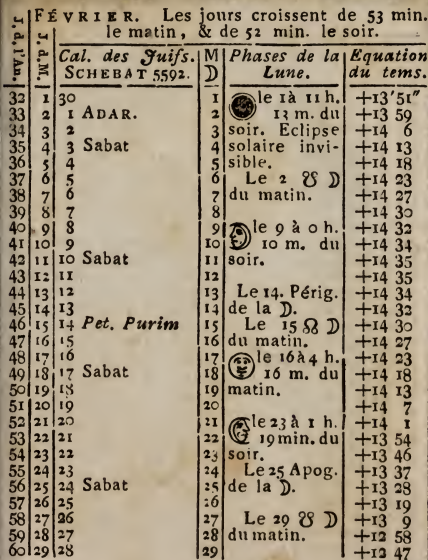 J. d. l'An.
J. d. M.
FÉVRIER. Les jours croissent de 53 min.
le matin, & de 52 min. le soir.
Cal. des Juifs. | M | Phases de la | Equation
SCHEBAT 5592. | ☽ | Lune. | du tems.
32 | 1 | 30 | 1 | le 1 à 11 h. | +13'51"
33 | 2 | 1 ADAR. | 2 | 13 m. du | +13 59
34 | 3 | 2 | 3 | soir. Eclipse | +14 6
35 | 4 | 3 Sabat | 4 | solaire invi- | +14 13
36 | 5 | 4 | 5 | sible. | +14 18
37 | 6 | 5 | 6 | Le 2 ☋ ☽ | +14 23
38 | 7 | 6 | 7 | du matin. | +14 27
39 | 8 | 7 | 8 | +14 30
40 | 9 | 8 | 9 | le 9 à 0 h. | +14 32
41 | 10 | 9 | 10 | 10 m. du | +14 34
42 | 11 | 10 Sabat | 11 | soir. | +14 35
43 | 12 | 11 | 12 | +14 35
44 | 13 | 12 | 13 | Le 14. Périg. | +14 34
45 | 14 | 13 | 14 | de la ☽. | +14 32
46 | 15 | 14 Pet. Purim | 15 | Le 15 ☊ ☽ | +14 30
47 | 16 | 15 | 16 | du matin. | +14 27
48 | 17 | 16 | 17 | le 16 à 4 h. | +14 23
49 | 18 | 17 Sabat | 18 | 16 m. du | +14 18
50 | 19 | 18 | 19 | matin. | +14 13
51 | 20 | 19 | 20 | +14 7
52 | 21 | 20 | 21 | le 23 à 1 h. | +14 1
53 | 22 | 21 | 22 | 19 min. du | +13 54
54 | 23 | 22 | 23 | soir. | +13 46
55 | 24 | 23 | 24 | Le 25 Apog. | +13 37
56 | 25 | 24 Sabat | 25 | de la ☽. | +13 28
57 | 26 | 25 | 26 | +13 19
58 | 27 | 26 | 27 | Le 29 ☋ ☽ | +13 9
59 | 28 | 27 | 28 | du matin. | +12 58
60 | 29 | 28 | 29 | +12 47